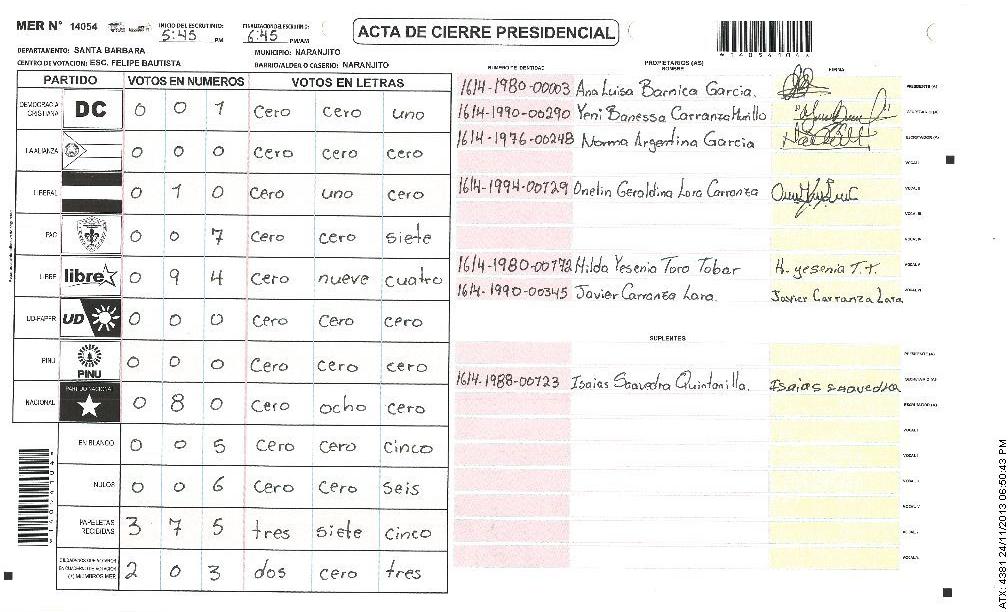 MER N° 14054 INICIO DEL ESCRUTINIO: 5:45 PM FINALIZACION DEL ESCRUTINIO: 6:45 PM/AM ACTA DE CIERRE PRESIDENCIAL
DEPARTAMENTO: SANTA BARBARA MUNICIPIO: NARANJITO
CENTRO DE VOTACION: ESC. FELIPE BAUTISTA BARRIO/ALDEA O CASERIO: NARANJITO
PARTIDO VOTOS EN NUMEROS VOTOS EN LETRAS
DEMOCRACIA CRISTIANA DC 0 0 1 Cero Cero uno
LA ALIANZA 0 0 0 Cero Cero cero
LIBERAL 0 1 0 Cero uno cero
PAC 0 0 7 Cero cero siete
LIBRE libre 0 9 4 Cero nueve cuatro
UD-FAPER UD 0 0 0 Cero Cero cero
PINU PINU 0 0 0 Cero Cero cero
NACIONAL PARTIDO NACIONAL 0 8 0 Cero ocho cero
EN BLANCO 0 0 5 Cero Cero cinco
NULOS 0 0 6 Cero Cero seis
PAPELETAS RECIBIDAS 3 7 5 tres siete cinco
CIUDADANOS QUE VOTARON EN CUADERNO DE VOTACION (+) MIEMBROS MER 2 0 3 dos cero tres
PROPIETARIOS (AS)
NUMERO DE IDENTIDAD NOMBRE FIRMA
1614-1980-00003 Ana Luisa Barnica Garcia. PRESIDENTE (A)
1614-1990-00290 Yeni Banessa Carranza Murillo SECRETARIO (A)
1614-1976-00248 Norma Argentina Garcia ESCRUTADOR (A)
VOCAL I
1614-1994-00729 Onelin Geraldina Lara Carranza VOCAL II
VOCAL III
VOCAL IV
1614-1980-00772 Hilda Yesenia Toro Tobar H. yesenia T.T. VOCAL V
1614-1990-00345 Javier Carranza Lara. Javier Carranza Lara VOCAL VI
SUPLENTES
PRESIDENTE (A)
1614-1988-00723 Isaias Saavedra Quintanilla. Isaias saavedra SECRETARIO (A)
ESCRUTADOR (A)
VOCAL I
ATX: 4381 24/11/2013 06:50:43 PM